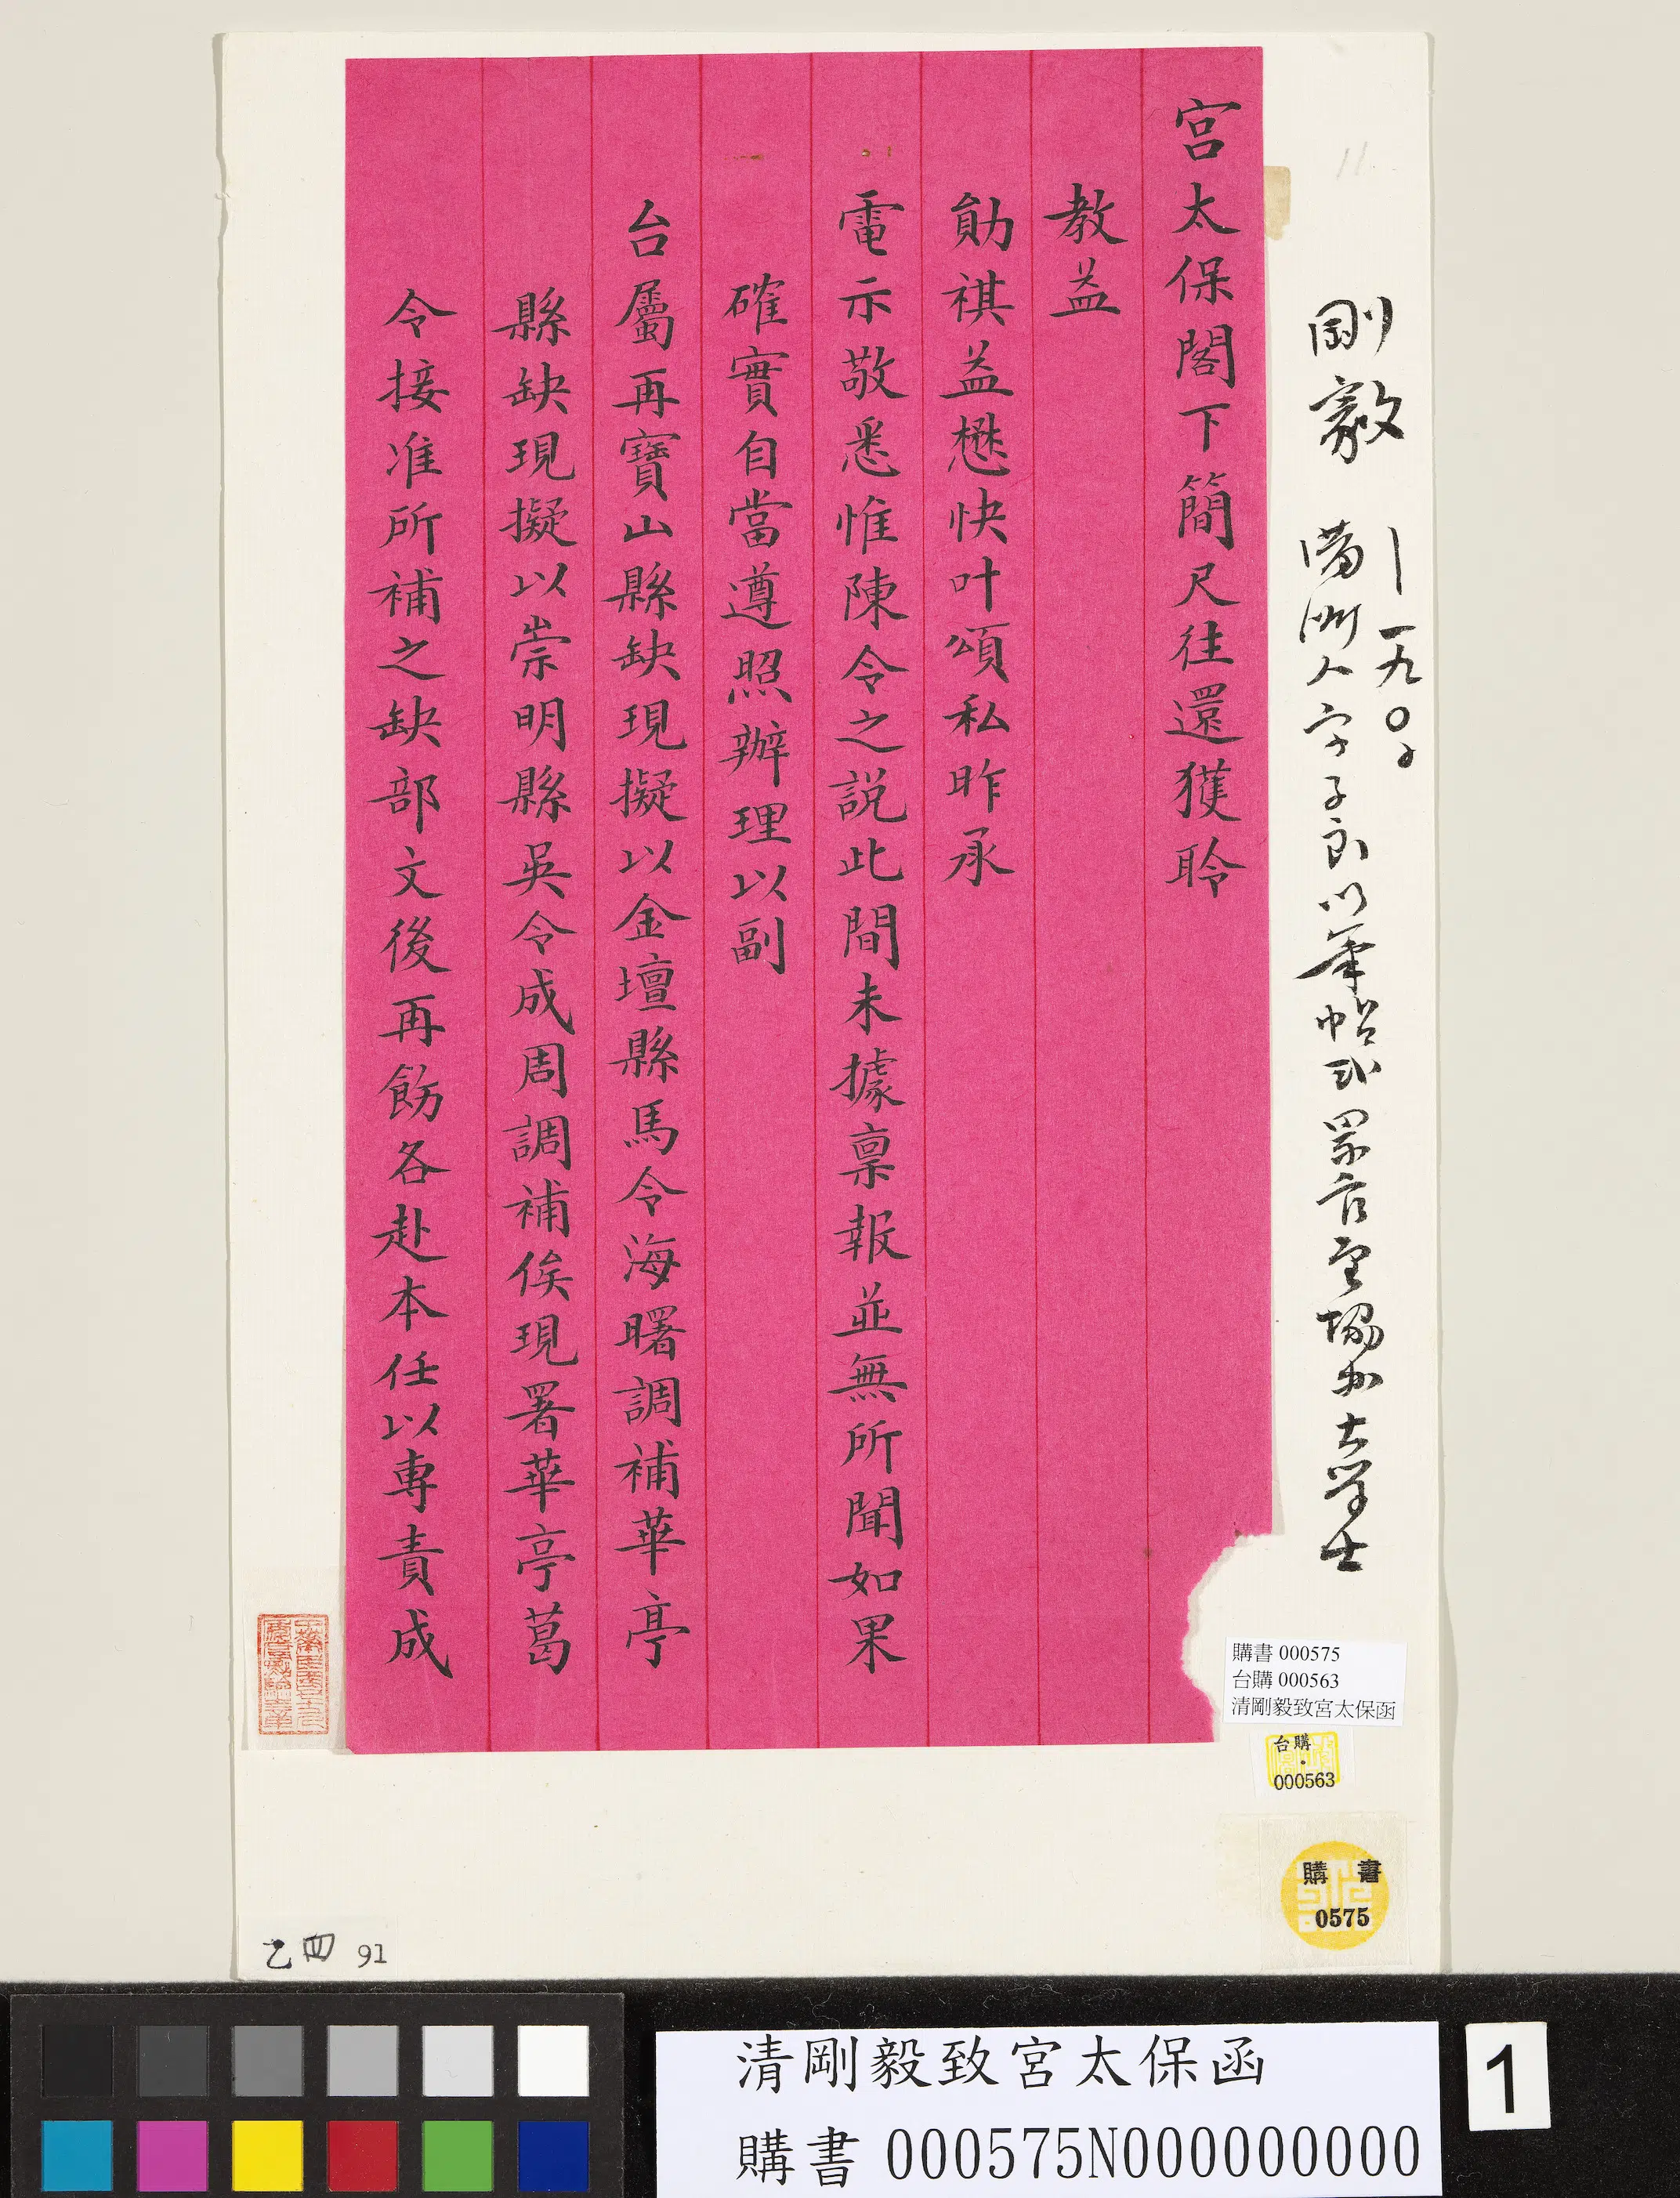 宮太保閣下簡尺往還獲聆
教益
勛祺益懋快叶頌私昨承
電示敬悉惟陳令之說此間未據稟報並無所聞如果
確實自當遵照辦理以副
台屬再寶山縣缺現擬以金壇縣馬令海曙調補華亭
縣缺現擬以崇明縣吳令成周調補俟現署華亭葛
令接准所補之缺部文後再飭各赴本任以專責成
11
剛毅 —一九〇〇
滿洲人字子良以筆帖式累官至協办大學士
購書 000575
台購 000563
清剛毅致宮太保函
台購
000563
購書
0575
乙四 91
清剛毅致宮太保函
購書 000575N000000000
1